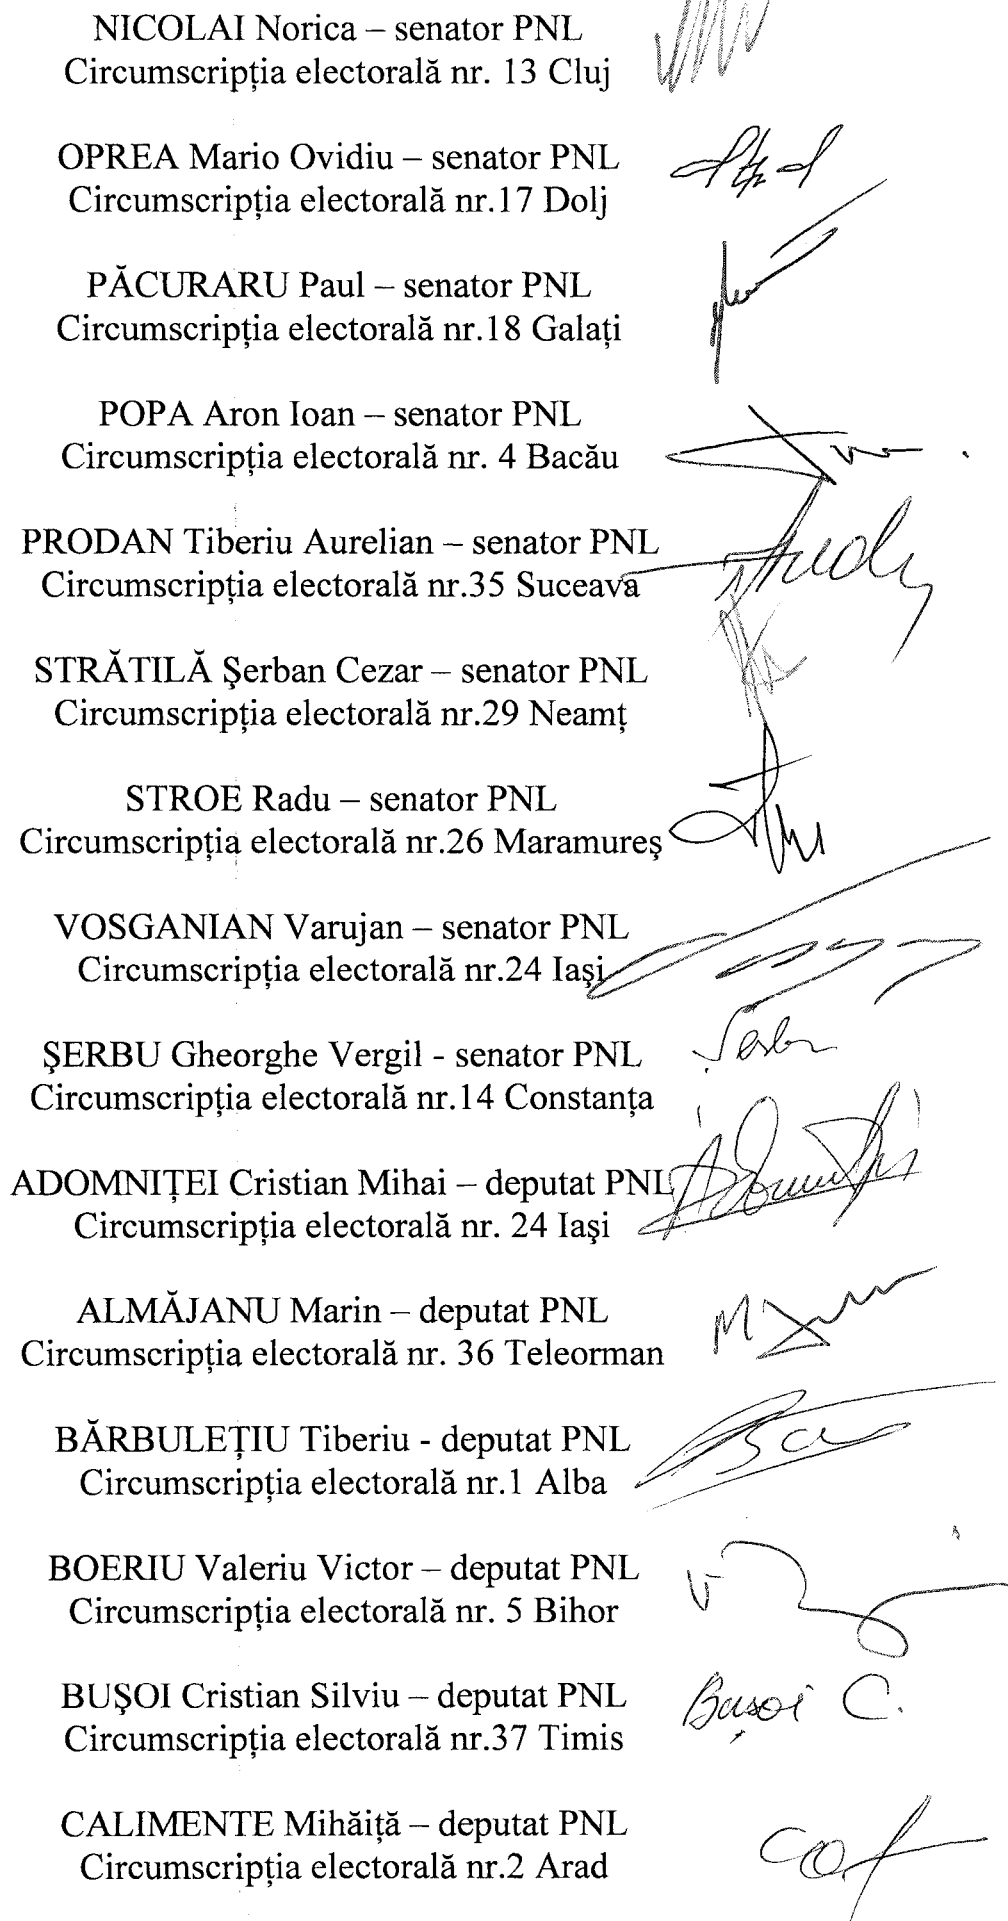 NICOLAI Norica – senator PNL
Circumscripția electorală nr. 13 Cluj
OPREA Mario Ovidiu – senator PNL
Circumscripția electorală nr.17 Dolj
PĂCURARU Paul – senator PNL
Circumscripția electorală nr.18 Galați
POPA Aron Ioan – senator PNL
Circumscripția electorală nr. 4 Bacău
PRODAN Tiberiu Aurelian – senator PNL
Circumscripția electorală nr.35 Suceava
STRĂTILĂ Şerban Cezar – senator PNL
Circumscripția electorală nr.29 Neamț
STROE Radu – senator PNL
Circumscripția electorală nr.26 Maramureş
VOSGANIAN Varujan – senator PNL
Circumscripția electorală nr.24 Iaşi
ŞERBU Gheorghe Vergil - senator PNL
Circumscripția electorală nr.14 Constanța
ADOMNIȚEI Cristian Mihai – deputat PNL
Circumscripția electorală nr. 24 Iaşi
ALMĂJANU Marin – deputat PNL
Circumscripția electorală nr. 36 Teleorman
BĂRBULEȚIU Tiberiu - deputat PNL
Circumscripția electorală nr.1 Alba
BOERIU Valeriu Victor – deputat PNL
Circumscripția electorală nr. 5 Bihor
BUŞOI Cristian Silviu – deputat PNL Buşoi C.
Circumscripția electorală nr.37 Timis
CALIMENTE Mihăiță – deputat PNL
Circumscripția electorală nr.2 Arad